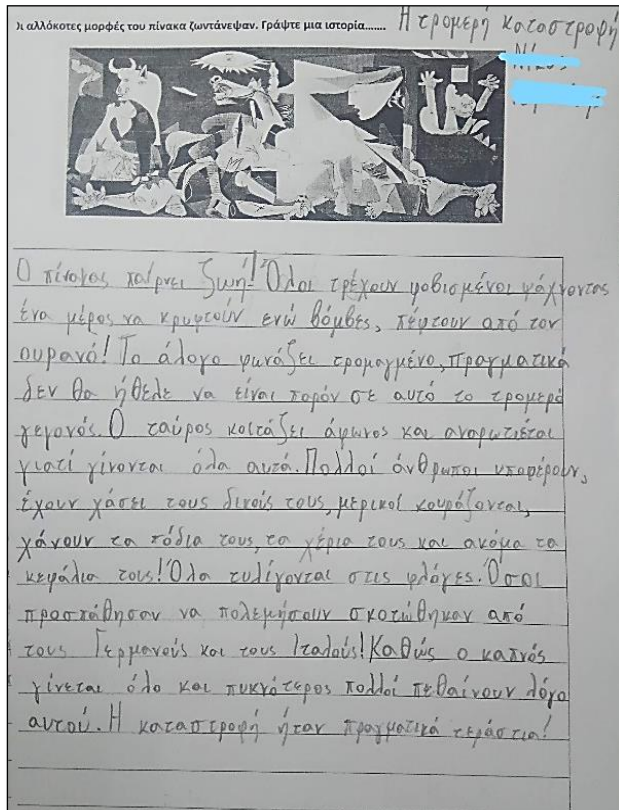 οι αλλόκοτες μορφές του πίνακα ζωντάνεψαν. Γράψτε μια ιστορία....... Η τρομερή καταστροφή
Ο πίνακας παίρνει ζωή! Όλοι τρέχουν φοβισμένοι ψάχνοντας
ένα μέρος να κρυφτούν ενώ βόμβες, πέφτουν από τον
ουρανό! Το άλογο φωνάζει τρομαγμένο, πραγματικά
δεν θα ήθελε να είναι παρόν σε αυτό το τρομερό
γεγονός. Ο ταύρος κοιτάζει άφωνος και αναρωτιέται
γιατί γίνονται όλα αυτά. Πολλοί άνθρωποι υποφέρουν,
έχουν χάσει τους δικούς τους, μερικοί κουράζονται,
χάνουν τα πόδια τους, τα χέρια τους και ακόμα τα
κεφάλια τους! Όλα τυλίγονται στις φλόγες. Όσοι
προσπάθησαν να πολεμήσουν σκοτώθηκαν από
τους Γερμανούς και τους Ιταλούς! Καθώς ο καπνός
γίνεται όλο και πυκνότερος πολλοί πεθαίνουν λόγο
αυτού. Η καταστροφή ήταν πραγματικά τεράστια!